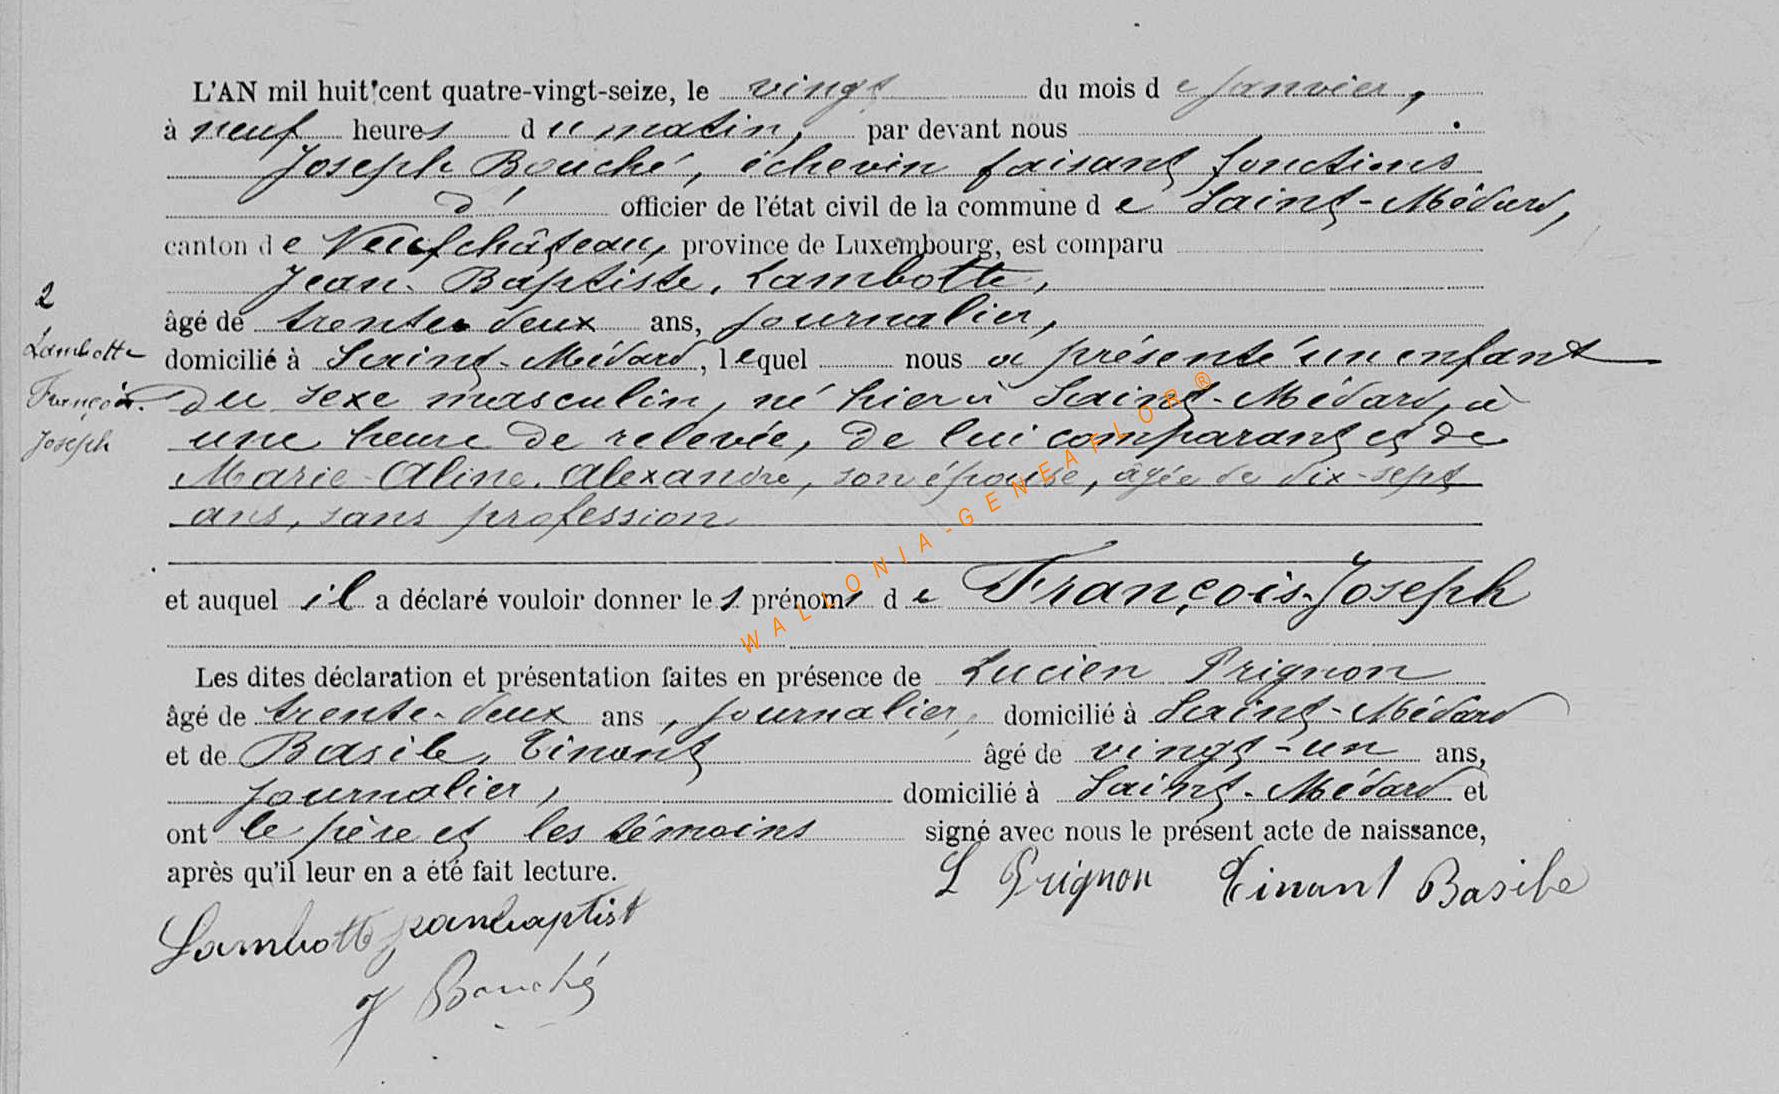 L'AN mil huit cent quatre-vingt-seize, le vingt du mois de Janvier,
à neuf heures du matin, par devant nous
Joseph Bouché, échevin faisant fonctions
d' officier de l'état civil de la commune de Saint-Médard,
canton de Neufchâteau, province de Luxembourg, est comparu
Jean-Baptiste, Lambotte,
âgé de trente-deux ans, journalier,
domicilié à Saint-Médard, lequel nous a présenté un enfant
du sexe masculin, né hier à Saint-Médard, à
une heure de relevée, de lui comparant et de
Marie-Aline Alexandre, son épouse, âgée de dix-sept
ans, sans profession
et auquel il a déclaré vouloir donner les prénoms de François-Joseph
Les dites déclaration et présentation faites en présence de Lucien Prignon
âgé de trente-deux ans, journalier, domicilié à Saint-Médard
et de Basile, Tinant âgé de vingt-un ans,
journalier, domicilié à Saint-Médard et
ont le père et les témoins signé avec nous le présent acte de naissance,
après qu'il leur en a été fait lecture.
L Prignon Tinant Basile
Lambotte jeanbaptist
J Bouché
2
Lambotte
François.
Joseph
WALLONIA-GENEAFLOR®